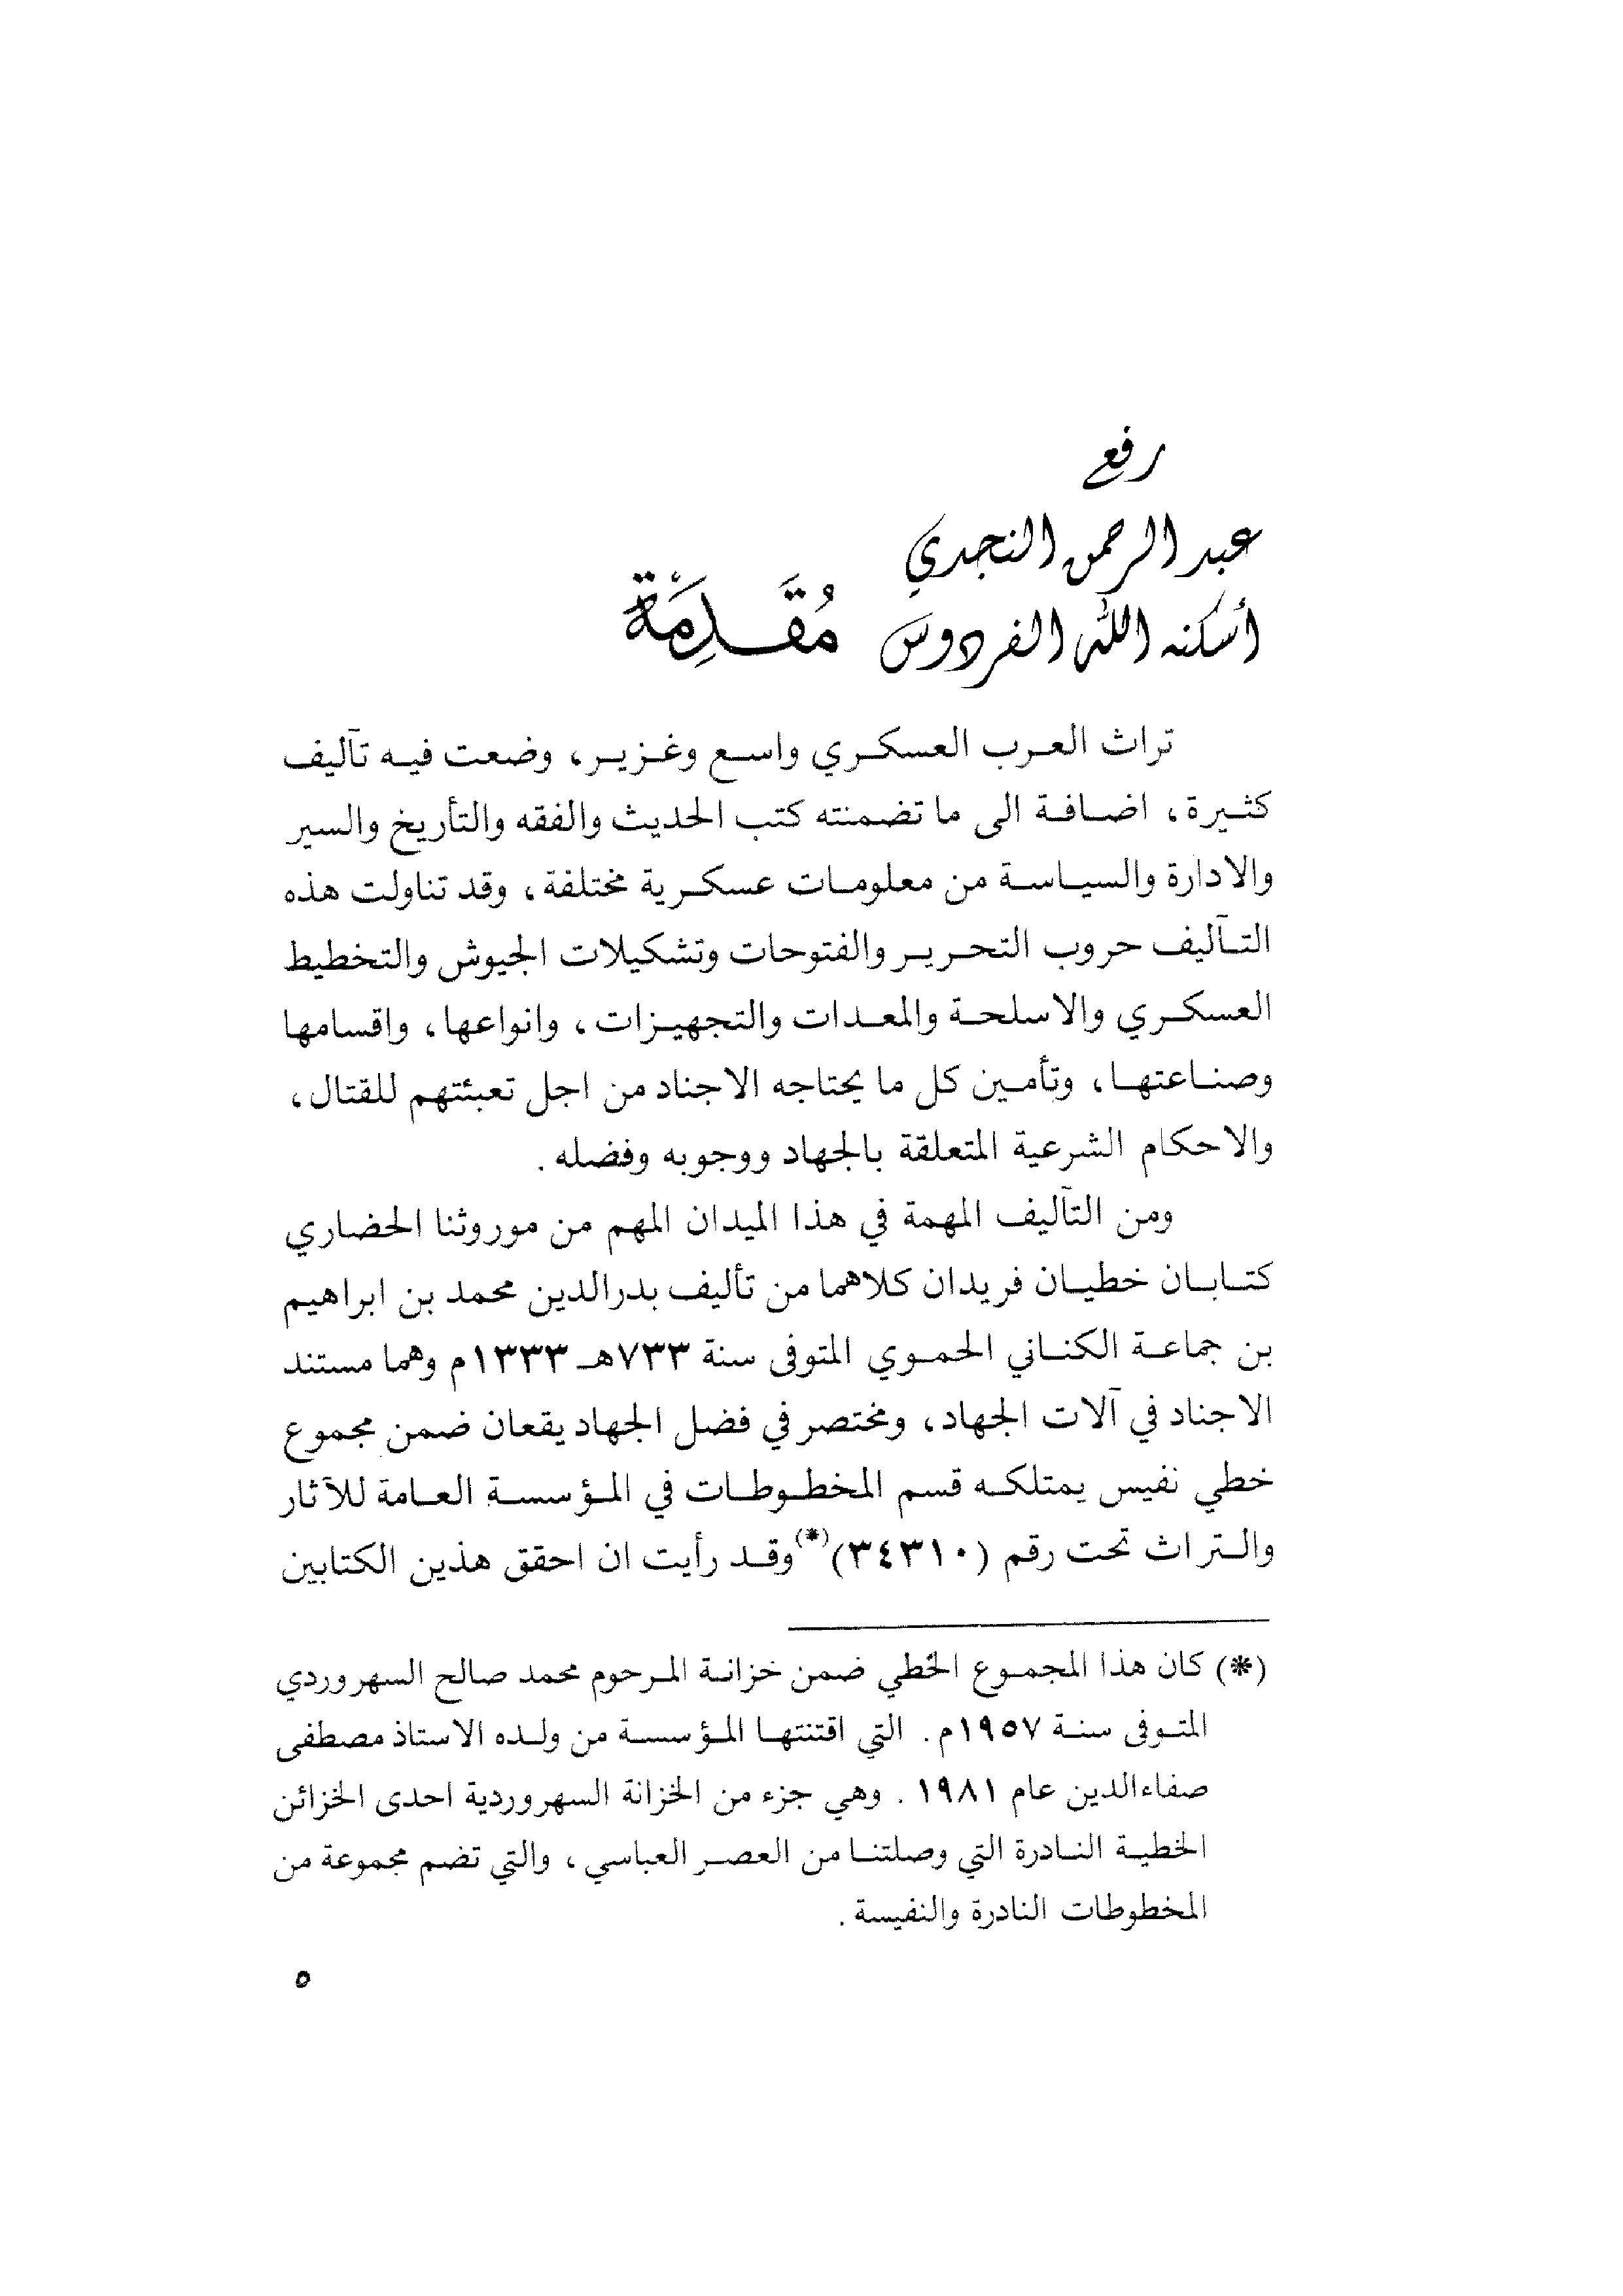 رفع
عبد الرحمن النجدي
أسكنه الله الفردوس
مُقَدِمَة
تراث العرب العسكري واسع وغزير، وضعت فيه تآليف
كثيرة، اضافة الى ما تضمنته كتب الحديث والفقه والتأريخ والسير
والادارة والسياسة من معلومات عسكرية مختلفة، وقد تناولت هذه
التآليف حروب التحرير والفتوحات وتشكيلات الجيوش والتخطيط
العسكري والاسلحة والمعدات والتجهيزات، وانواعها، واقسامها
وصناعتها، وتأمين كل ما يحتاجه الاجناد من اجل تعبئتهم للقتال،
والاحكام الشرعية المتعلقة بالجهاد ووجوبه وفضله.
ومن التآليف المهمة في هذا الميدان المهم من موروثنا الحضاري
كتابان خطيان فريدان كلاهما من تأليف بدرالدين محمد بن ابراهيم
بن جماعة الكناني الحموي المتوفى سنة ٧٣٣هـ ١٣٣٣م وهما مستند
الاجناد في آلات الجهاد، ومختصر في فضل الجهاد يقعان ضمن مجموع
خطي نفيس يمتلكه قسم المخطوطات في المؤسسة العامة للآثار
والتراث تحت رقم (٣٤٣١٠)(*) وقد رأيت ان احقق هذين الكتابين
(*) كان هذا المجموع الخطي ضمن خزانة المرحوم محمد صالح السهروردي
المتوفى سنة ١٩٥٧م. التي اقتنتها المؤسسة من ولده الاستاذ مصطفى
صفاءالدين عام ١٩٨١. وهي جزء من الخزانة السهروردية احدى الخزائن
الخطية النادرة التي وصلتنا من العصر العباسي، والتي تضم مجموعة من
المخطوطات النادرة والنفيسة.
٥